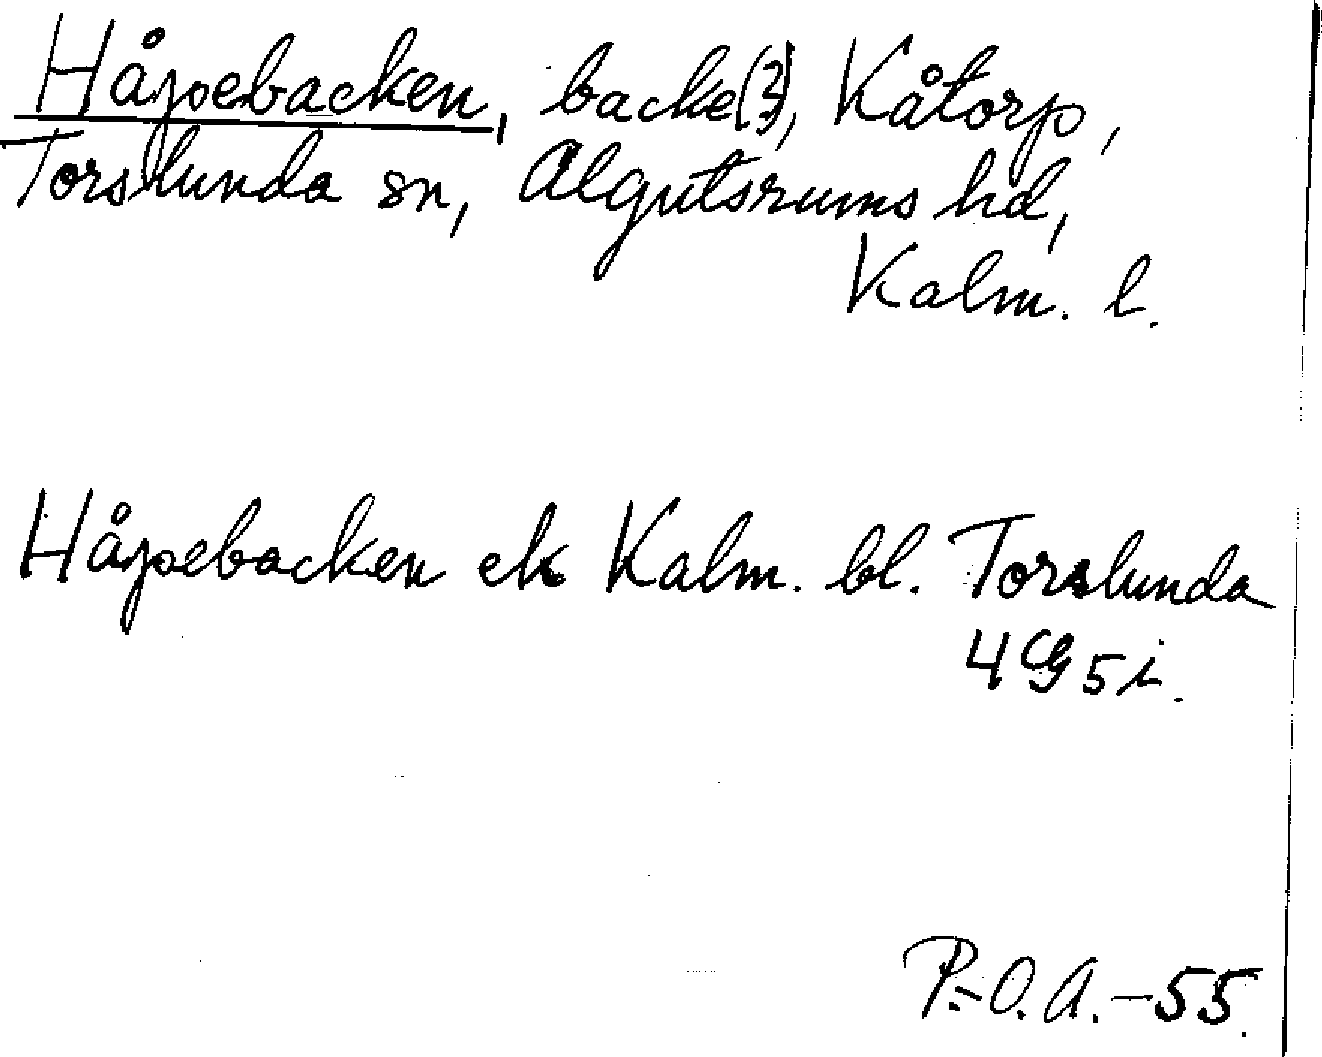 Håpebacken, backe(?), Kåtorp,
Torslunda sn, Algutsrums hd,
Kalm. l.
Håpebacken ek Kalm. bl. Torslunda
4G5i.
P.-O.A.-55.